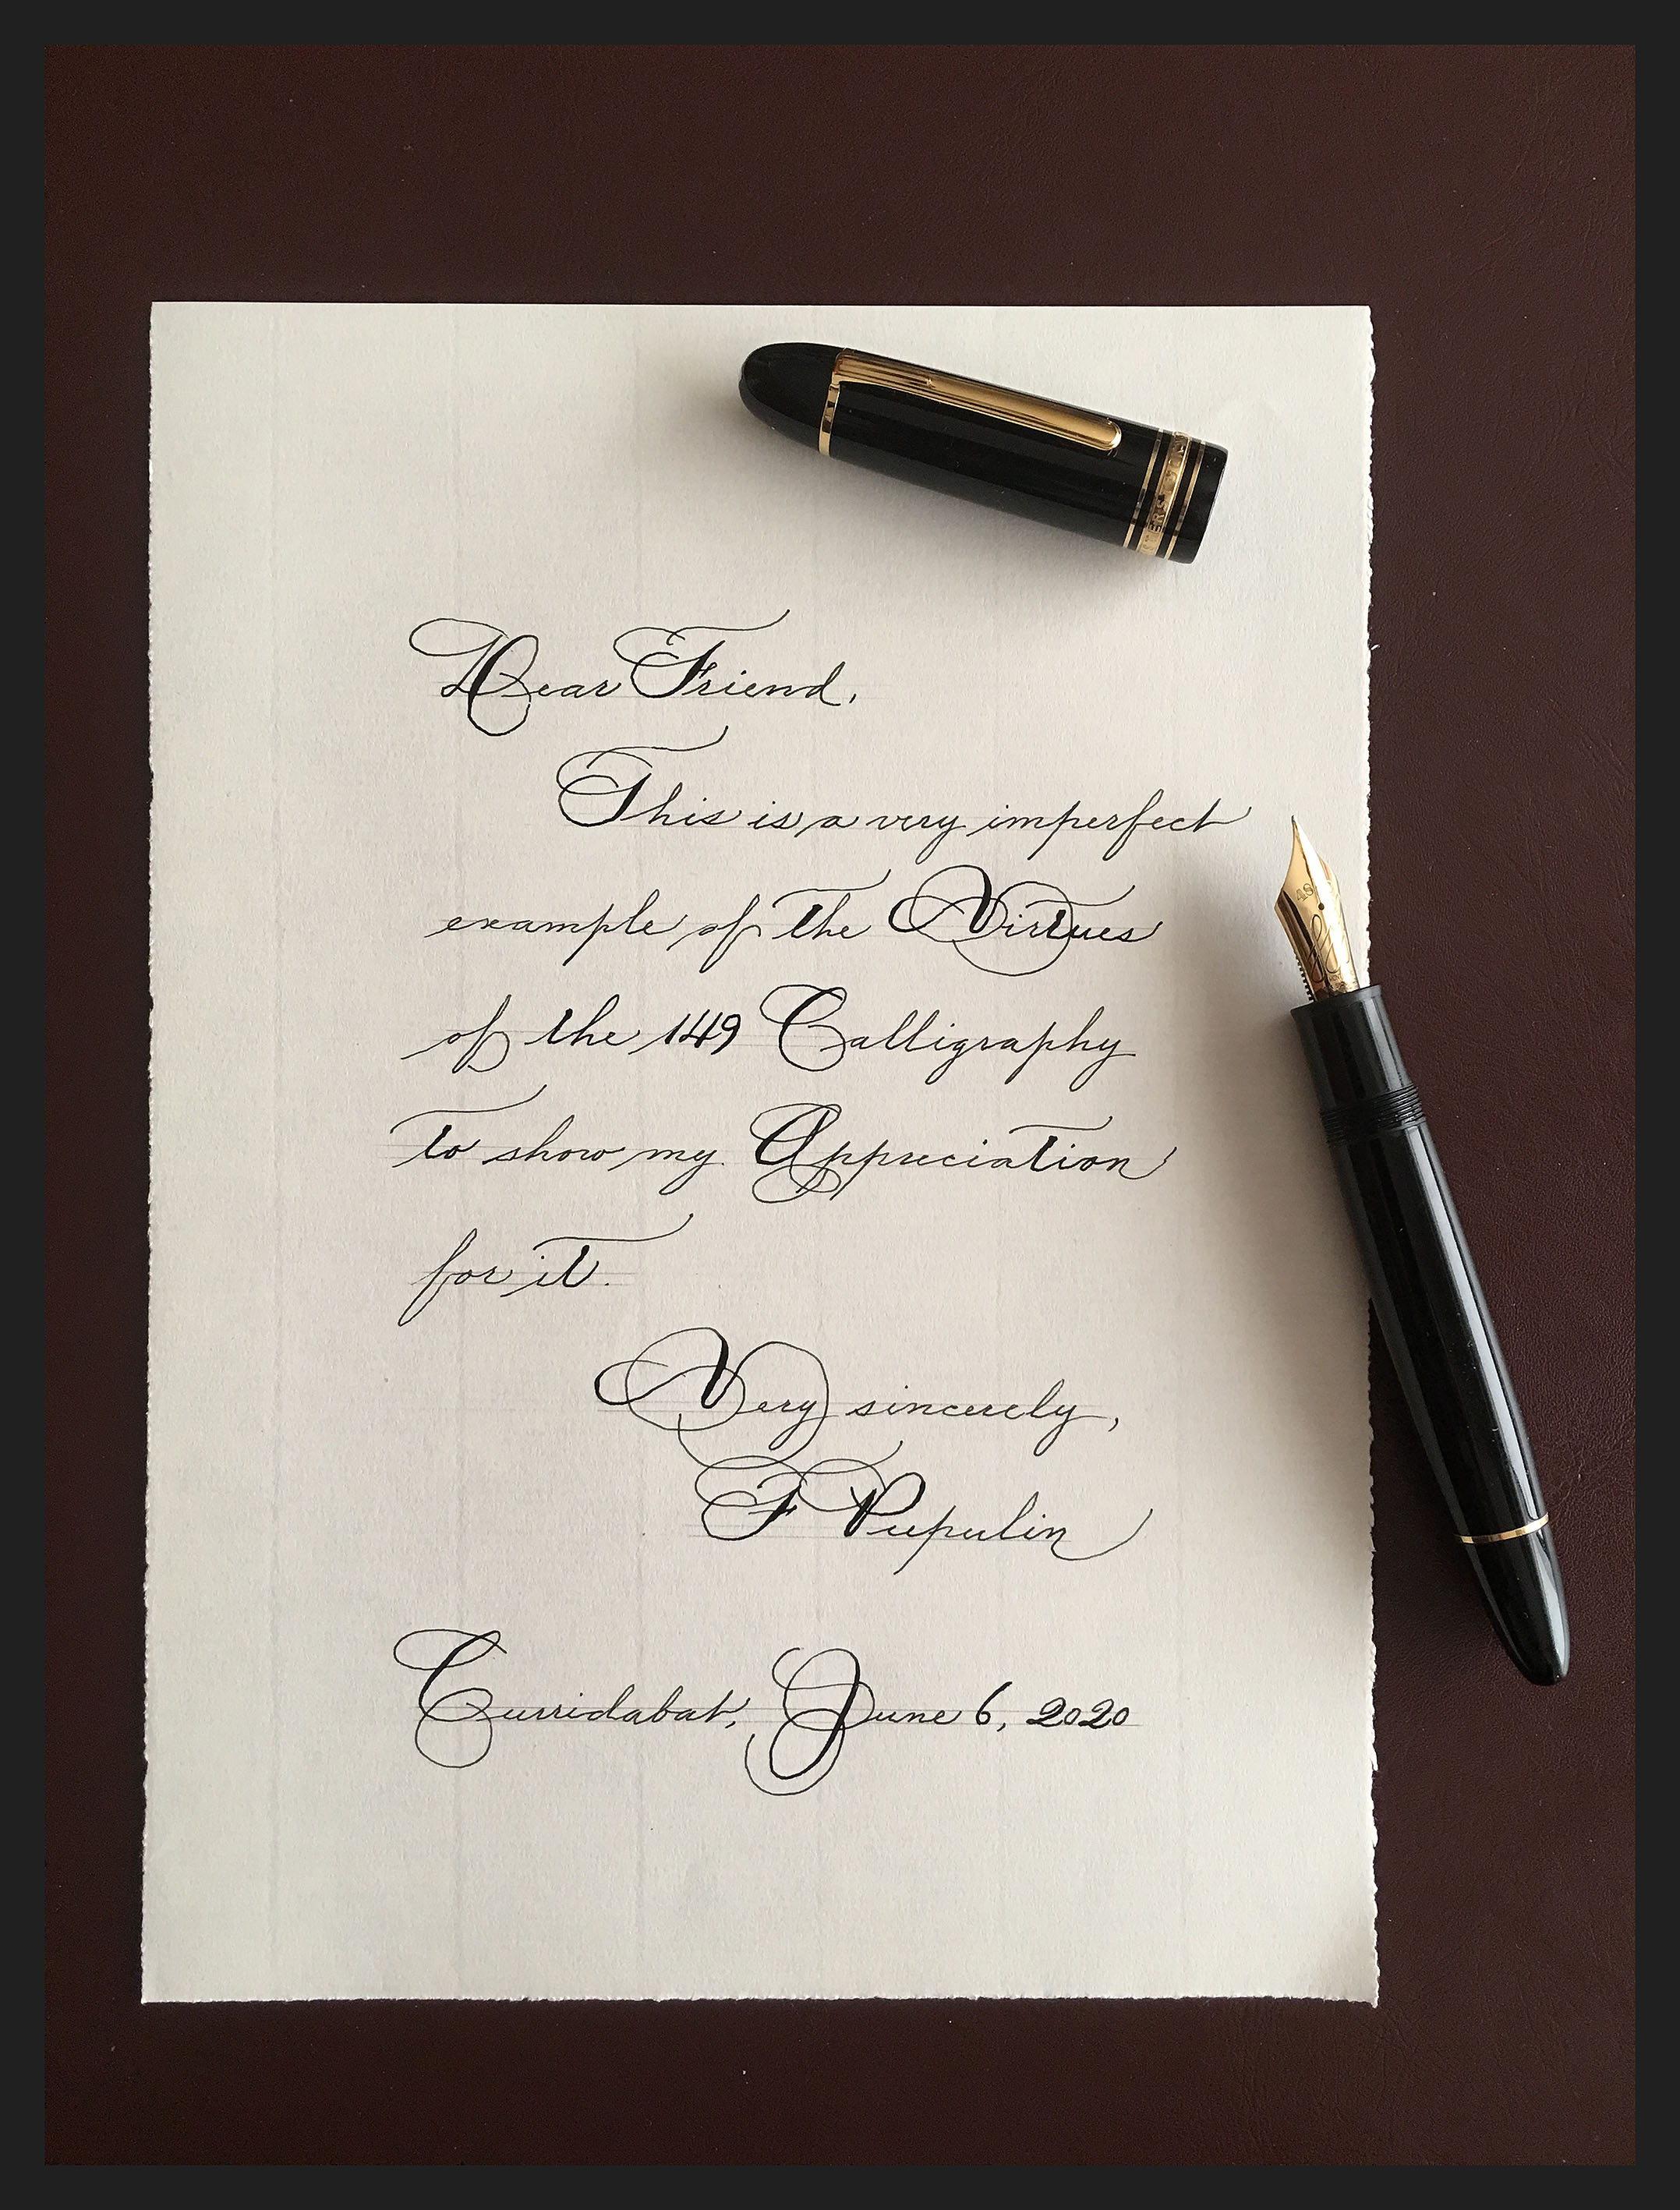 Dear Friend,
This is a very imperfect
example of the Virtues
of the 149 Calligraphy
to show my Appreciation
for it.
Very sincerely,
F Pupulin
Curridabat, June 6, 2020